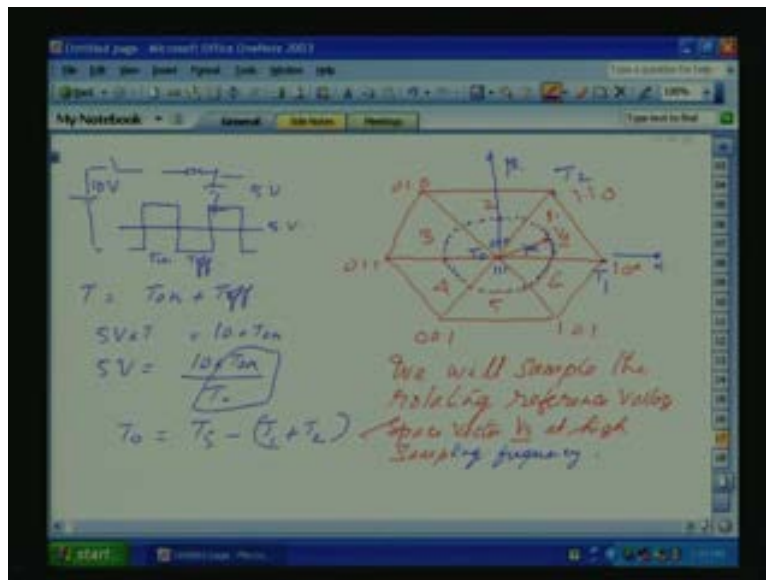 Untitled page - Microsoft Office OneNote 2003
File Edit View Insert Format Tools Window Help
Type a question for help
100%
My Notebook
General
Side Notes
Meetings
Type text to find
10V
5V
5V
Ton Toff
T = Ton + Toff
5V × T = 10 × Ton
5V = 10 × Ton
T0 = Ts - (T1 + T2)
β
T2
010
110
2
1
3
Vs
T0
011
T1
100
4
6
5
001
101
We will sample the
rotating reference
space vector Vs at high
Sampling frequency.
start